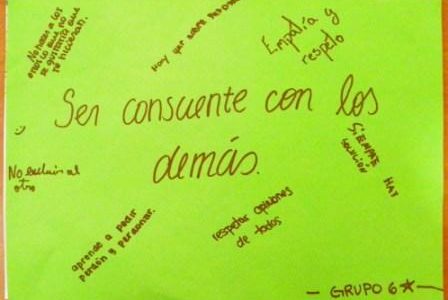 No hacer a los
otros lo que no
te gustaría que
te hicieran.
Hay que saber
Empatía y
respeto
Ser consciente con los
demás.
SIEMPRE HAY
SOLUCIÓN
No excluir al
otro
aprende a pedir
perdón y perdonar.
respetar opiniones
de todos
GRUPO 6